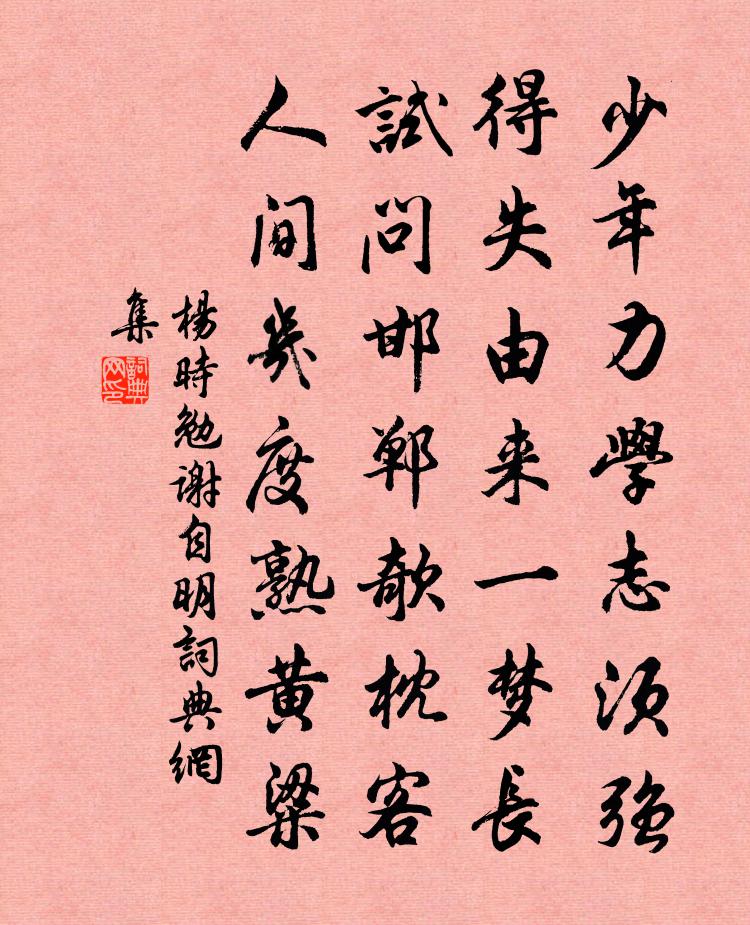 少年力學志須强
得失由来一梦長
試問邯鄲欹枕客
人间幾度熟黄粱
楊時勉谢自明詞典網
集
詞典网印